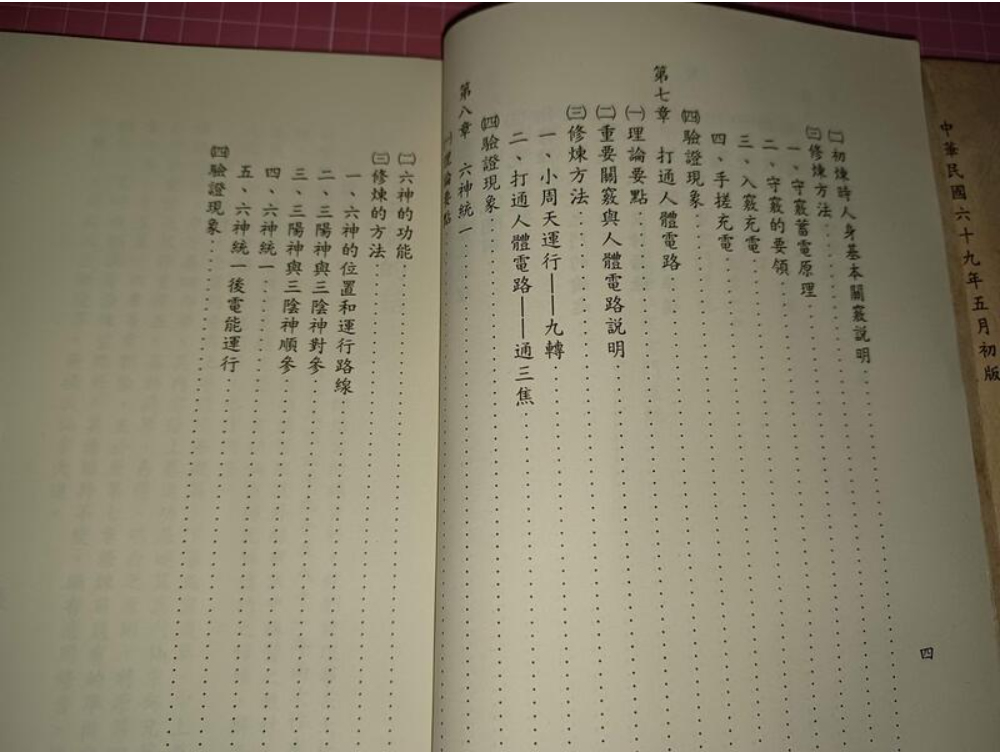 中華民國六十九年五月初版
㈡初煉時人身基本關竅説明
㈢修煉方法
一、守竅蓄電原理
二、守竅的要領
三、入竅充電
四、手搓充電
㈣驗證現象
第七章 打通人體電路
㈠理論要點
㈡重要關竅與人體電路説明
㈢修煉方法
一、小周天運行——九轉
二、打通人體電路——通三焦
㈣驗證現象
第八章 六神統一
㈠理論要點
四
㈡六神的功能
㈢修煉的方法
一、六神的位置和運行路線
二、三陽神與三陰神對參
三、三陽神與三陰神順參
四、六神統一
五、六神統一後電能運行
㈣驗證現象